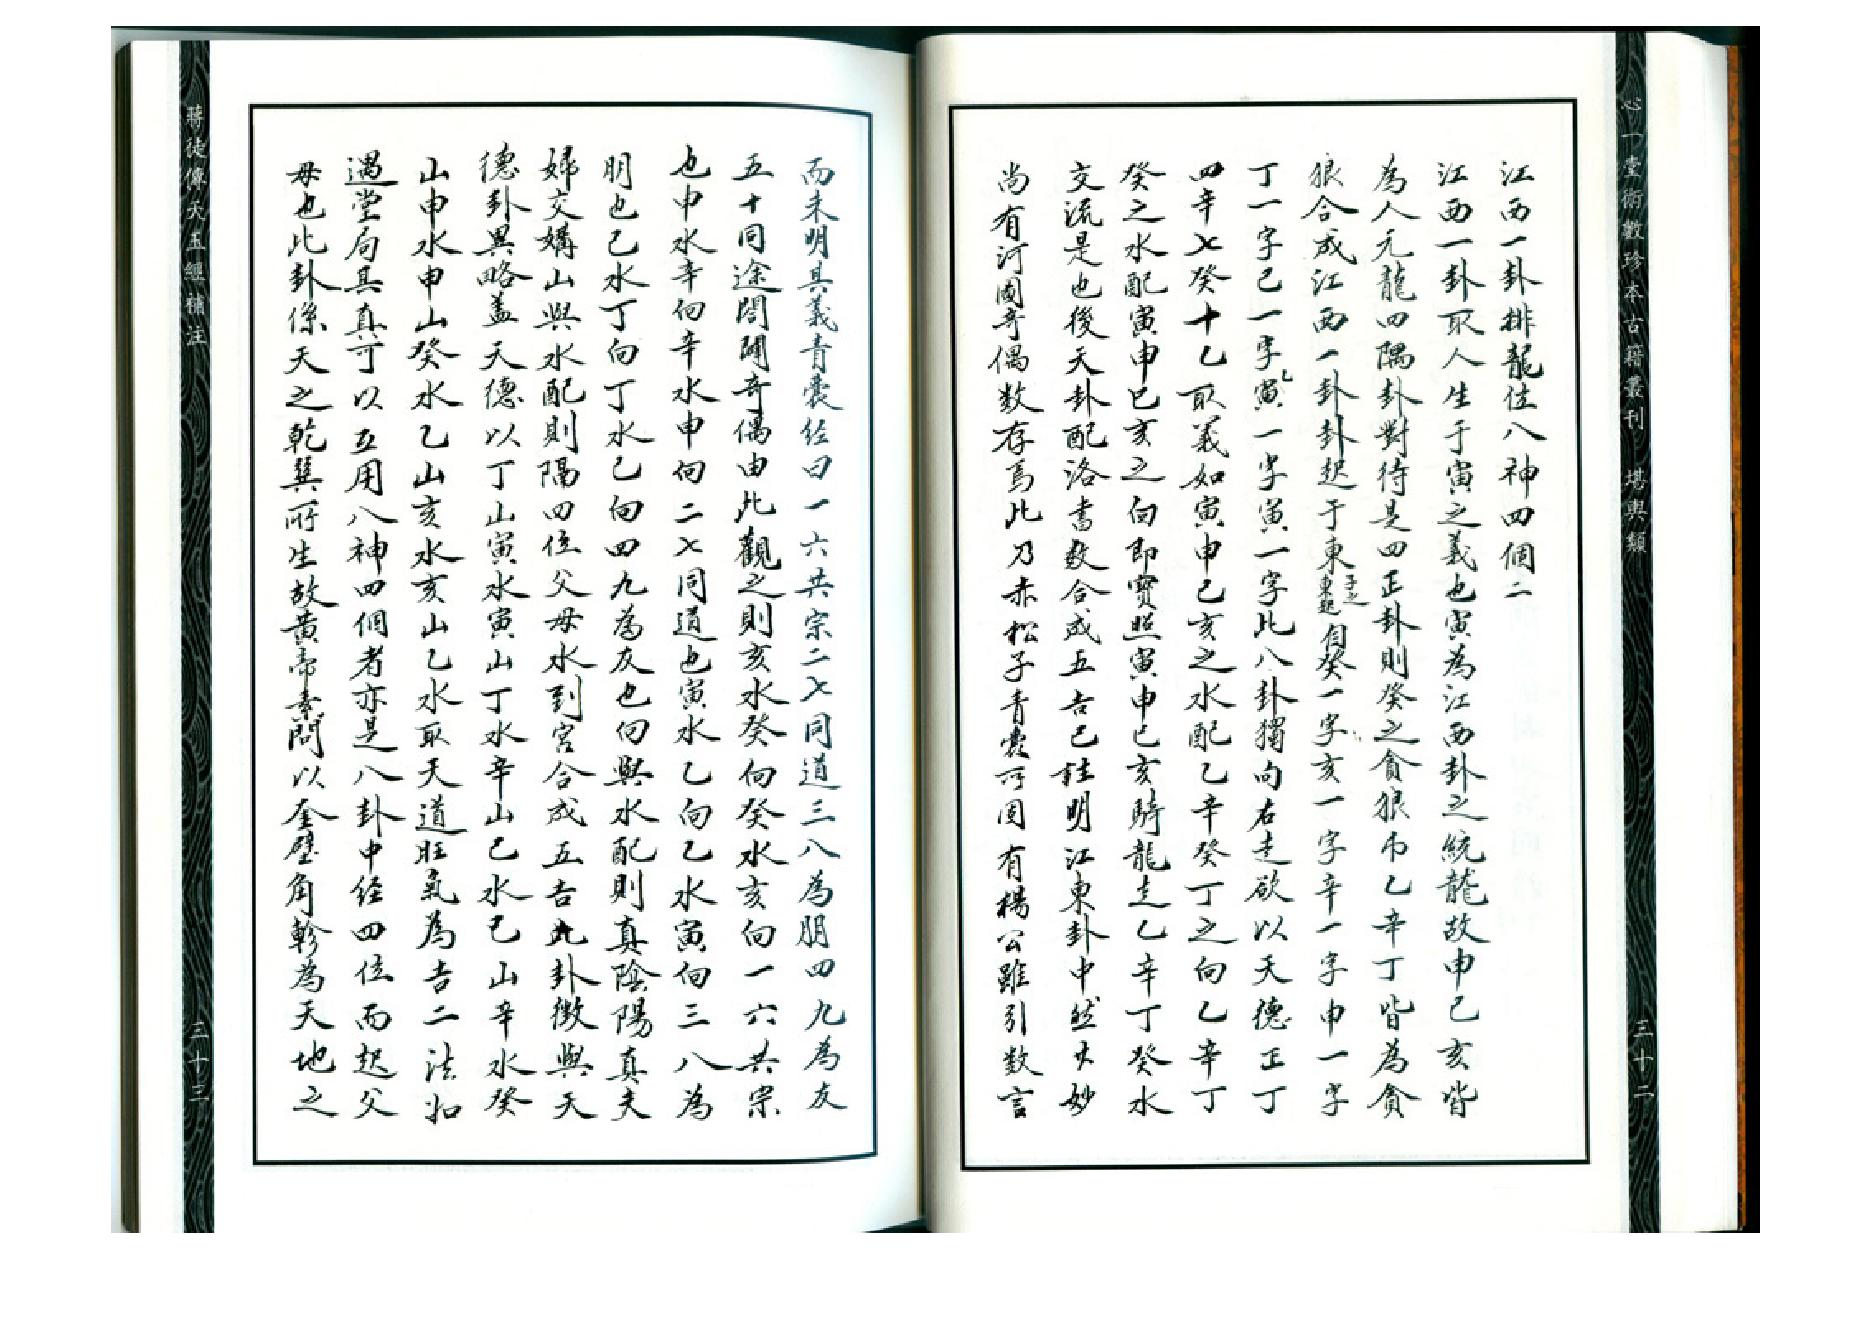 心一堂術數珍本古籍叢刊 堪輿類
三十二
江西一卦排龍位八神四個二
江西一卦取人生于寅之義也寅為江西卦之統龍故申巳亥皆
為人元龍四隅卦對待是四正卦則癸之貪狼而乙辛丁皆為貪
狼合成江西一卦卦起于東癸一字亥一字辛一字申一字
丁一字巳一字寅一字寅一字此八卦獨向右走欲以天德正丁
四辛七癸十乙取義如寅申巳亥之水配乙辛癸丁之向乙辛丁
癸之水配寅申巳亥之向即寶照寅申巳亥騎龍走乙辛丁癸水
交流是也後天卦配洛書數合成五吉已註明江東卦中然其妙
尚有河圖奇偶数存焉此乃赤松子青囊河圖有楊公雖引数言
而未明其義青囊经曰一六共宗二七同道三八為朋四九為友
五十同途闔闢奇偶由此觀之則亥水癸向癸水亥向一六共宗
也申水辛向辛水申向二七同道也寅水乙向乙水寅向三八為
明也巳水丁向丁水巳向四九為友也向與水配則真陰陽真夫
婦交媾山與水配則隔四位父母水到宮合成五吉九卦徵與天
德卦異略盖天德以丁山寅水寅山丁水辛山巳水巳山辛水癸
山申水申山癸水乙山亥水亥山乙水取天道旺氣為吉二法如
遇堂局具真可以互用八神四個者亦是八卦中经四位而起父
母也此卦係天之乾巽所生故黃帝素問以奎壁角軫為天地之
蔣徒傳天玉經補注
三十三